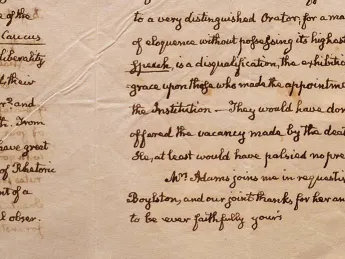 e of the
Caucus
liberality
their
r? and
th. From
have great
of Rhetoric
nt of a
l obser.
to a very distinguished Orator; for a ma
of eloquence without possessing its highest
Speech, is a disqualification, the exhibition
grace upon those who made the appointme
the Institution — They would have don
offered the vacancy made by the deat
He, at least would have palsied no pre
Mrs Adams joins me in requesti
Boylston, and our joint thanks for her an
to be ever faithfully yours